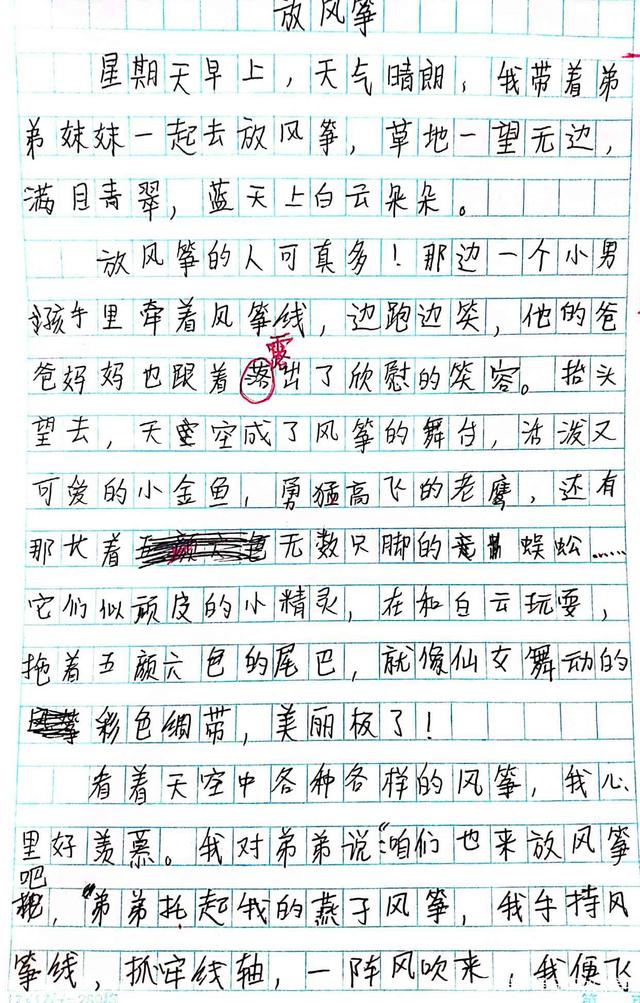 放风筝
星期天早上，天气晴朗，我带着弟
弟妹妹一起去放风筝，草地一望无边，
满目青翠，蓝天上白云朵朵。
放风筝的人可真多！那边一个小男
孩手里牵着风筝线，边跑边笑，他的爸
露
爸妈妈也跟着落出了欣慰的笑容。抬头
望去，天空成了风筝的舞台，活泼又
可爱的小金鱼，勇猛高飞的老鹰，还有
那长着无数只脚的蜈蚣……
它们似顽皮的小精灵，在和白云玩耍，
拖着五颜六色的尾巴，就像仙女舞动的
彩色绸带，美丽极了！
看着天空中各种各样的风筝，我心
里好羡慕。我对弟弟说：“咱们也来放风筝
吧，”弟弟托起我的燕子风筝，我手持风
筝线，抓牢线轴，一阵风吹来，我便飞